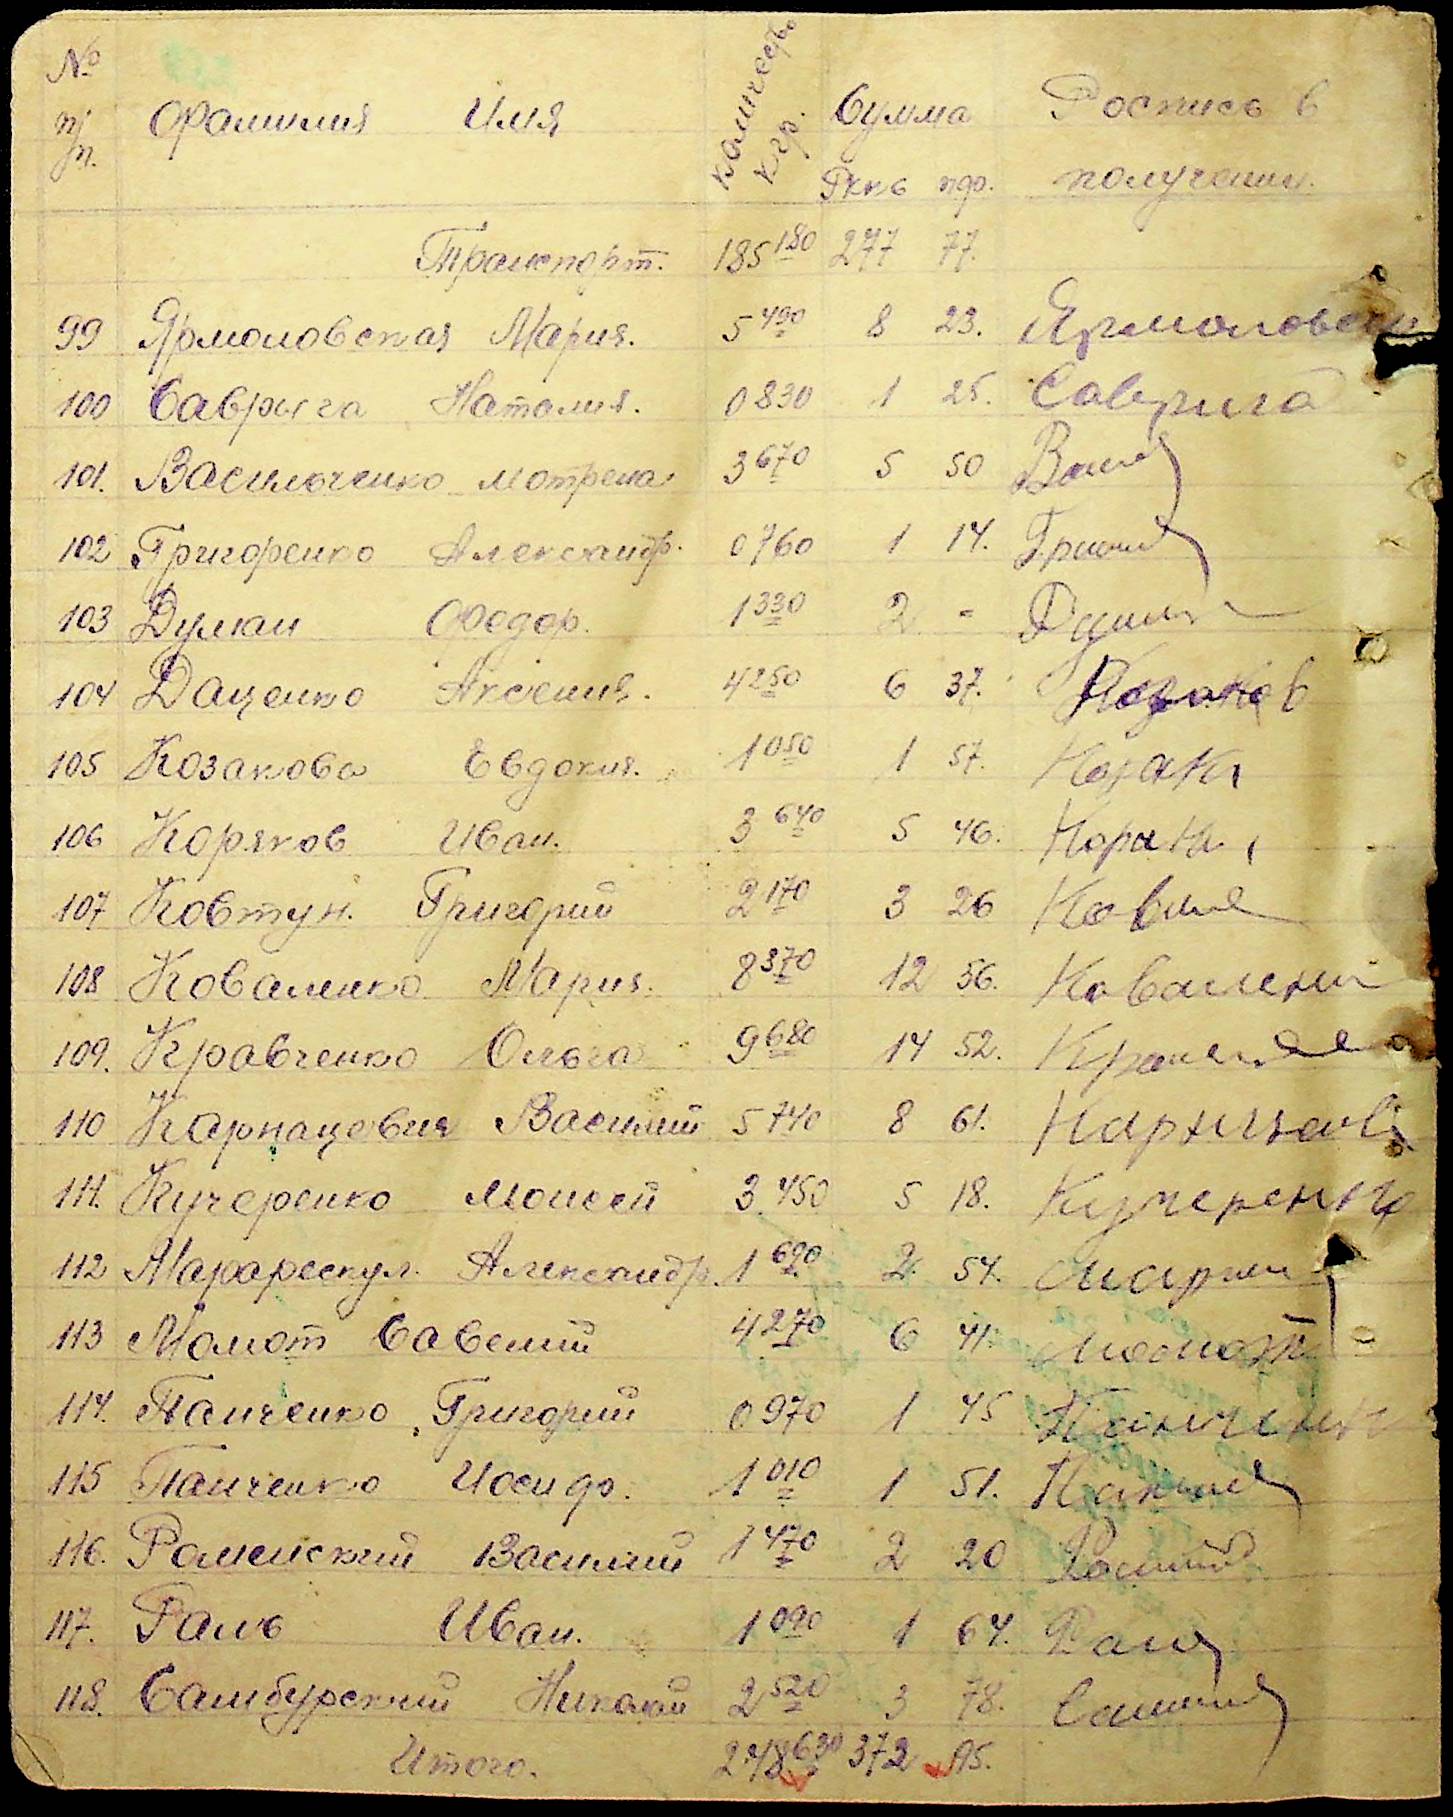 № п/п. Фамилия Имя Количество кгр. Сумма Роспись в
Ркпб пф. получении.
Транспорт. 185 180 277 77.
99 Ярмоловская Мария. 5 490 8 23. Ярмоловск
100 Саврыга Наталия. 0830 1 25. Саврига
101. Василюченко Мотрена 3 670 5 50
102 Григоренко Александр. 0760 1 14.
103 Думан Федор. 1 330 2 =
104 Даценко Аксения. 4 250 6 37. Козаков
105 Козакова Евдокия. 1 050 1 57. Козак
106 Коряков Иван. 3 640 5 46.
107 Ковтун. Григорий 2 170 3 26
108 Коваленко Мария. 8 370 12 56.
109. Кравченко Ольга 9 680 14 52.
110 Карпацевич Василий 5 740 8 61.
111. Кучеренко Моисей 3.450 5 18. Кучеренко
112 Марарескул. Александр. 1 690 2. 54.
113 Момот Савелий 4 270 6 41. Момот
114. Панченко Григорий 0 970 1 45
115 Панченко Иосиф. 1 010 1 51.
116. Роменский Василий 1 470 2 20
117. Раль Иван. 1 090 1 64.
118. Самбурский Николай 2 520 3 78.
Итого. 248 630 372 95.